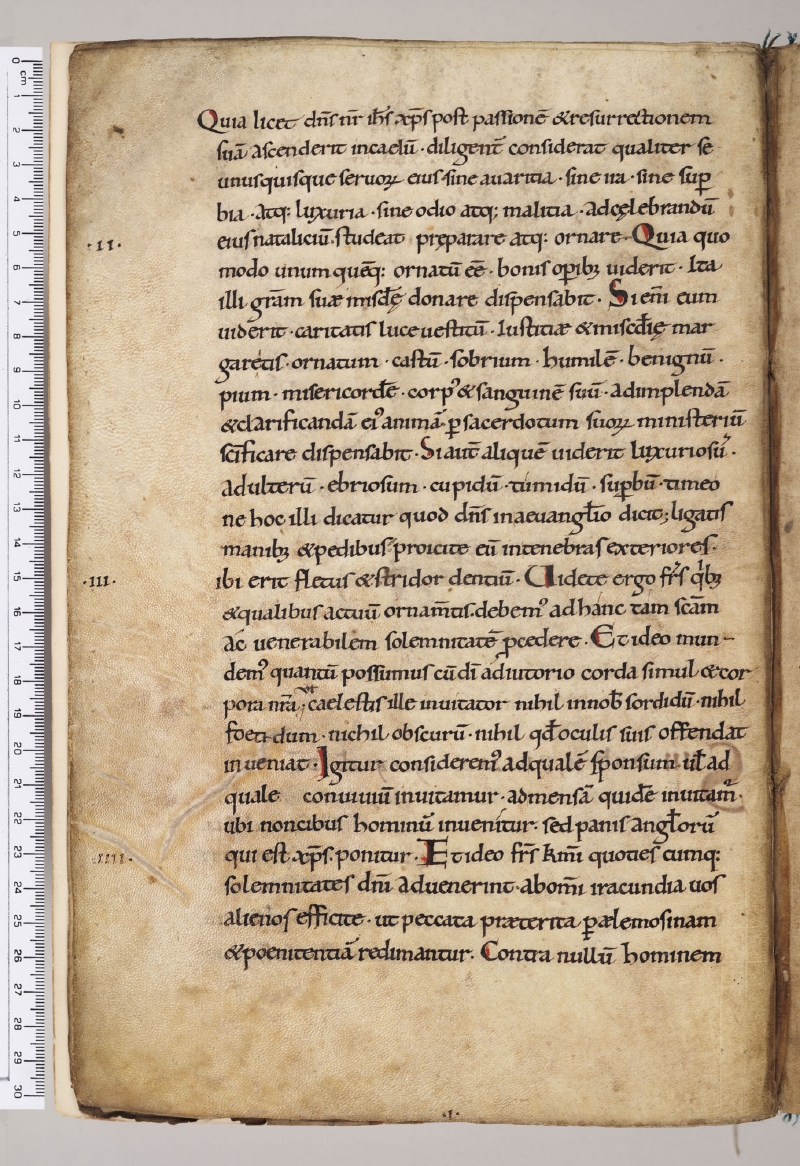 Quia licet dn̄s nr̄ ih̄s xp̄s post passionē & resurrectionem
suā ascenderit in caelū · diligent̄ considerat qualiter se
unusquisque seruoꝝ eius sine auaritia · sine ira · sine suꝑ
bia · atq: luxuria · sine odio atq; malitia · ad cęlebrandū
·II·
eius nataliciū · studeat pręparare atq: ornare · Quia quo
modo unum quēq: ornatū eē · bonis oꝑibꝫ uiderit · Ita
illi grām suæ misdę̄ donare dispensabit · Si eni̅ eum
uiderit · caritatis luce uestitū · Iustitiæ & miscdię̄ mar
garetis · ornatum · castū · sobrium · humilē · benignū ·
pium · misericordē · corpꝰ & sanguinē suū · ad implendā
& clarificandā eiꝰ animā · ꝑ sacerdotum suoꝝ ministeriū
sc̄ificare dispensabit · Si aut̄ aliquē uiderit luxuriosū ·
adulterū · ebriosum · cupidū · tumidū · suꝑbū · timeo
ne hoc illi dicatur quod dn̄s in aeuanglio̅ dicit; ligatis
manibꝫ & pedibus proicite eū in tenebras exteriores ·
·III·
ibi erit fletus & stridor dentiū · Uidete ergo fr̄s qͥbꝫ
& qualibus actuū ornam̄tis · debemꝰ ad hanc tam sc̄am
ac uenerabilem solemnitatē ꝓcedere · Et ideo mun-
demꝰ quantū possimus cū dī adiutorio corda simul & cor
pora nr̄a · ut caelestis ille inuitator nihil in nob̄ sordidū · nihil
foetidum · nichil obscurū · nihil qd̄ oculis suis offendat
inueniat · Igitur consideremꝰ ad qualē sponsum · ul̄ ad
quale conuiuiū inuitamur · ad mensā quidē inuitam̄ ·
ubi non cibus hominū inuenitur · sed panis anglo̅rū
·IIII·
qui est xp̄s · ponitur · Et ideo fr̄s km̄i quotiescumq:
solemnitates dn̄i aduenerint · ab om̄i iracundia uos
alienos efficite · ut peccata præterita ꝑ ælemosinam
& poenitentiā redimantur · Contra nullū hominem
·I·